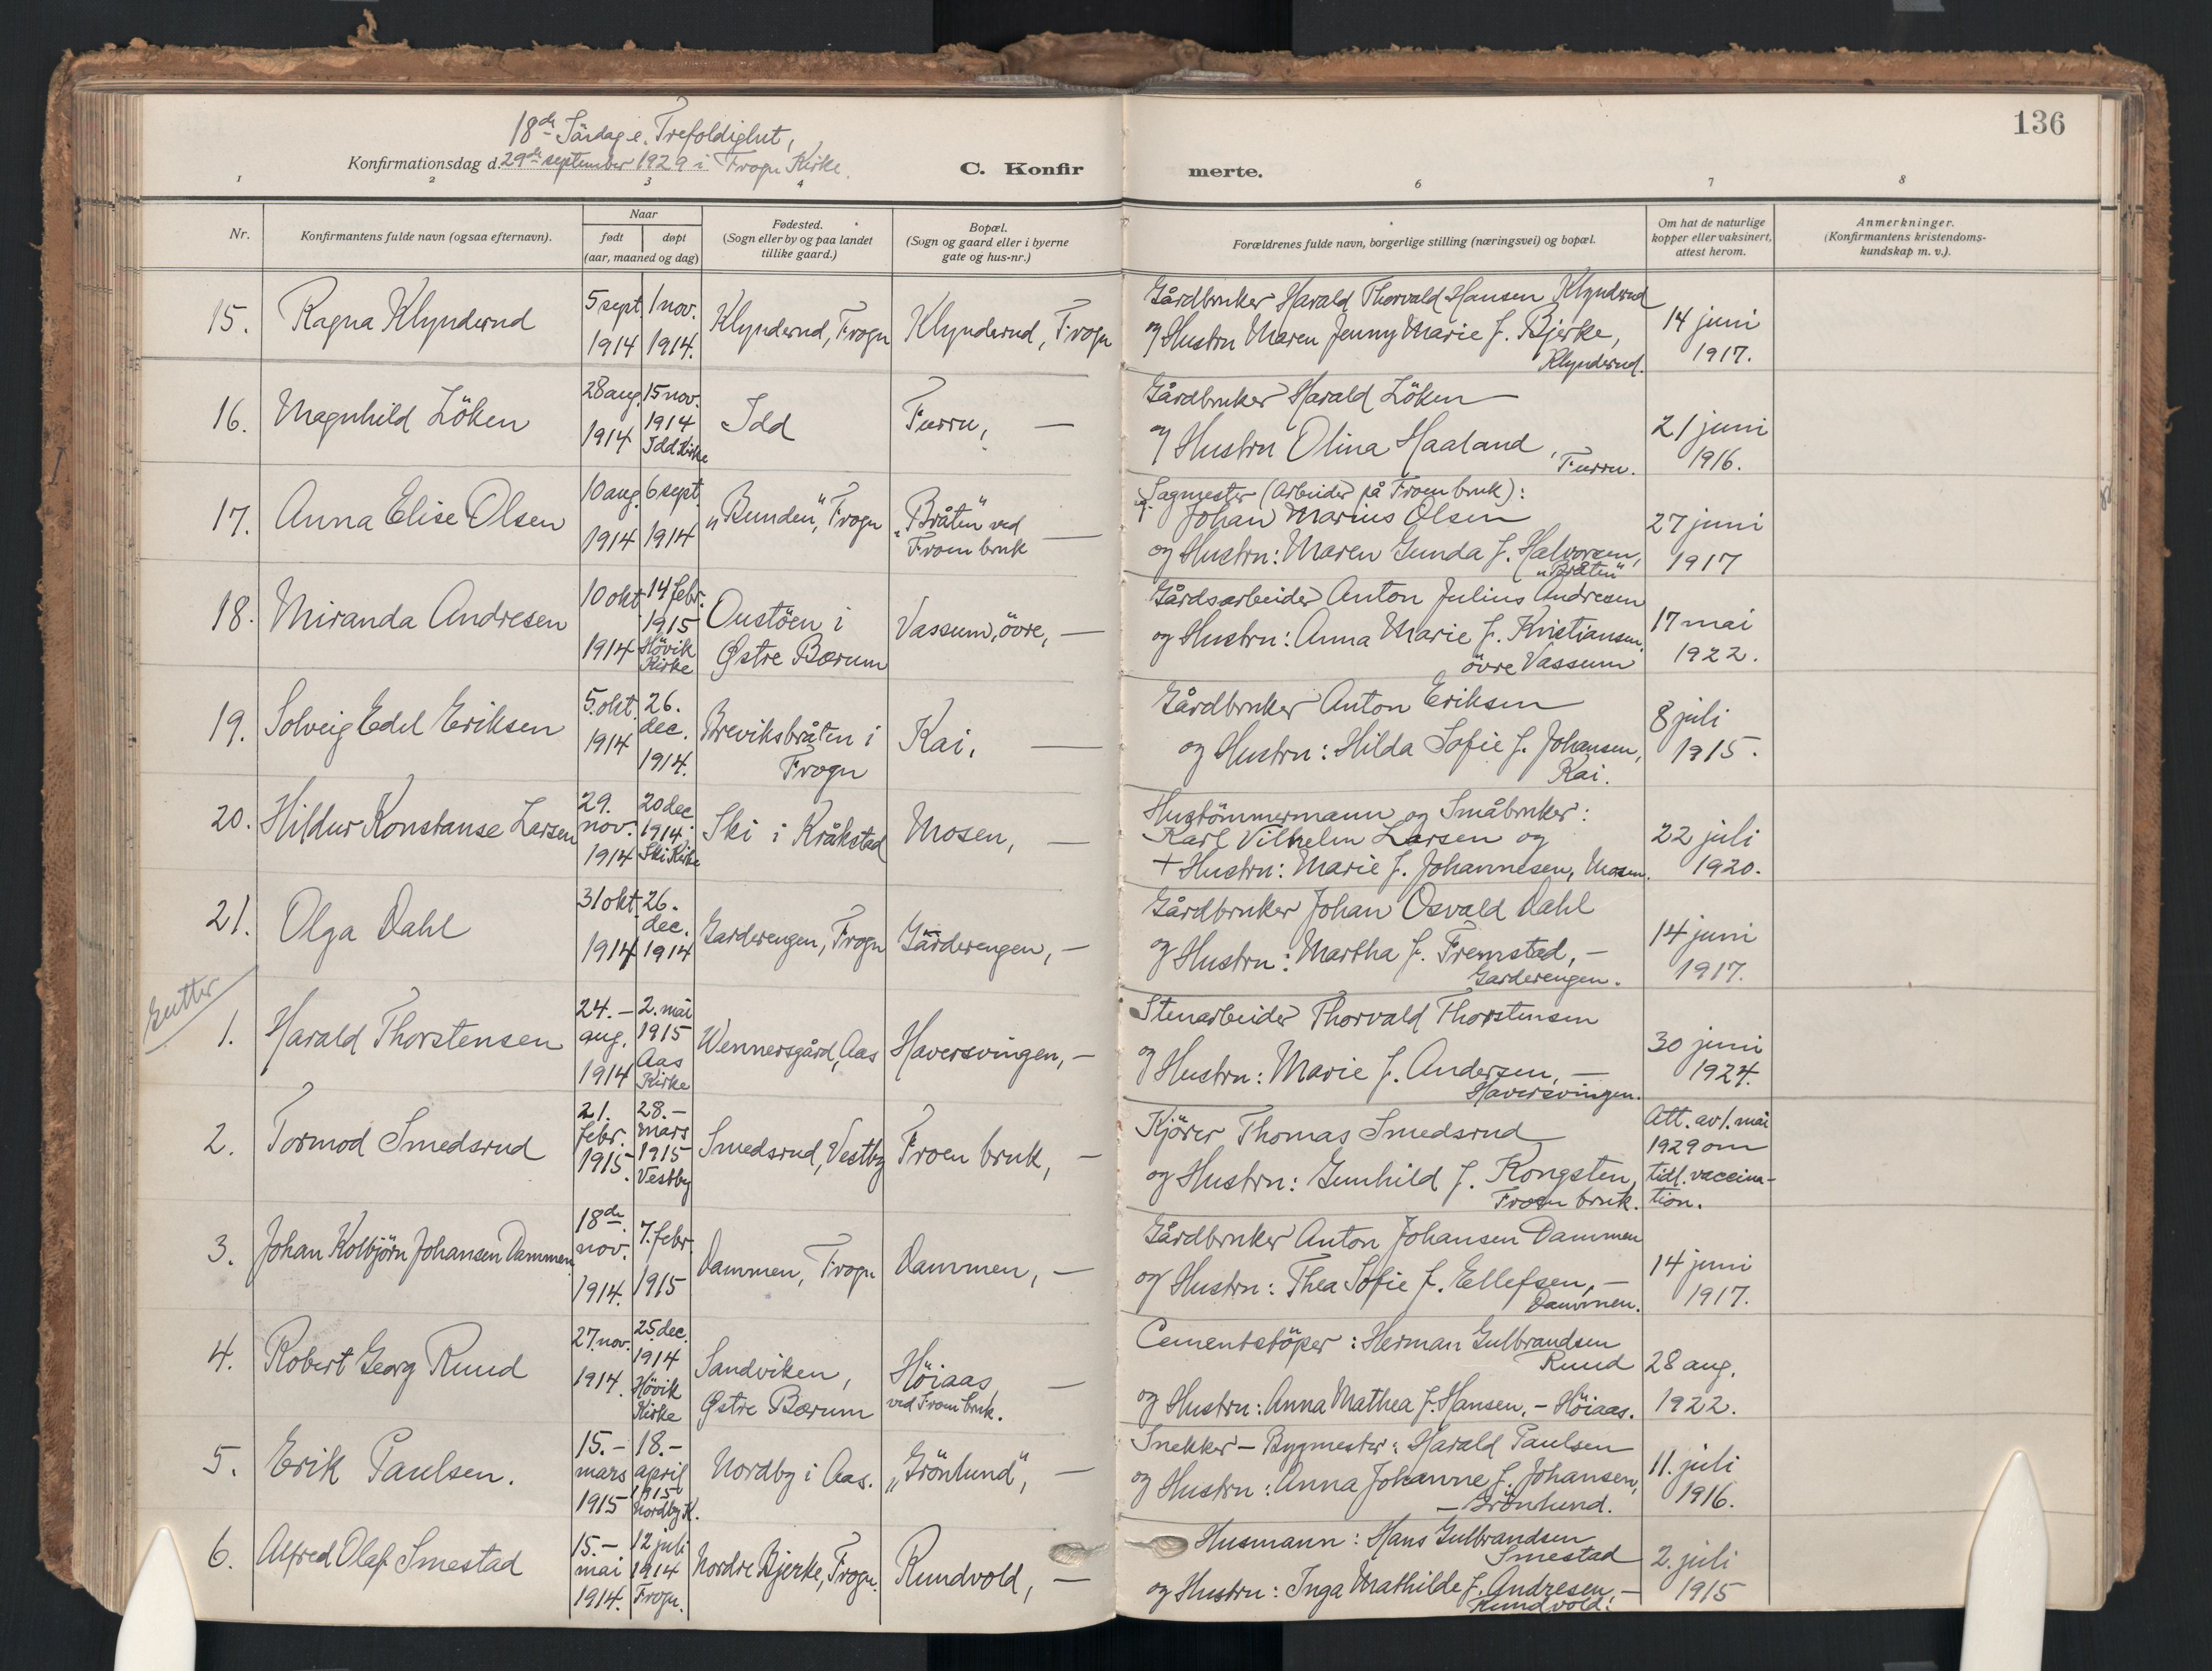 136
18de Søndag e. Trefoldighet,
Konfirmationsdag d. 29de september 1929 i Frogn Kirke.
C. Konfir
merte.
1 2 3 4 6 7 8
Nr.
Konfirmantens fulde navn (ogsaa efternavn).
Naar
født døpt
(aar, maaned og dag)
Fødested.
(Sogn eller by og paa landet
tillike gaard.)
Bopæl.
(Sogn og gaard eller i byerne
gate og hus-nr.)
Forældrenes fulde navn, borgerlige stilling (næringsvei) og bopæl.
Om hat de naturlige
kopper eller vaksinert,
attest herom.
Anmerkninger.
(Konfirmantens kristendoms-
kundskap m. v.).
15. Ragna Klynderud
5 sept. 1914
1 nov. 1914.
Klynderud, Frogn
Klynderud, Frogn
Gårdbruker Harald Thorvald Hansen Klynderud
og Hustru Maren Jenny Marie f. Bjerke,
Klynderud.
14 juni
1917.
16. Magnhild Löken
28 aug. 1914
15 nov.
1914
Idd Kirke
Idd
Furru, —
Gårdbruker Harald Löken —
og Hustru Olina Haaland,
Furru.
21 juni
1916.
17. Anna Elise Olsen
10 aug. 1914
6 sept. 1914
„Bunden", Frogn
„Bråten" ved
Froen bruk —
Sagmester (Arbeider på Froen bruk):
Johan Marius Olsen
og Hustru: Maren Gunda f. Halvorsen,
„Bråten"
27 juni
1917
18. Miranda Andresen
10 okt 1914
14 febr.
1915
Hövik
Kirke
Oustöen i
Østre Bærum
Vassum, övre, —
Gårdsarbeider Anton Julius Andresen
og Hustru: Anna Marie f. Kristiansen,
övre Vassum
17 mai
1922.
19. Solveig Edel Eriksen
5. okt. 1914
26.
dec.
1914.
Breviksbråten i
Frogn
Kai, —
Gårdbruker Anton Eriksen
og Hustru: Hilda Sofie f. Johansen,
Kai.
8 juli
1915.
20. Hildur Konstanse Larsen
29.
nov.
1914
20 dec
1914.
Ski Kirke
Ski i Kråkstad
Mosen, —
Hustömmermann og Småbruker:
Karl Vilhelm Larsen og
+ Hustru: Marie f. Johannesen, Mosen.
22 juli
1920.
21. Olga Dahl
31 okt. 1914
26.
dec.
1914
Garderengen, Frogn
Gårderengen, —
Gårdbruker Johan Osvald Dahl
og Hustru: Martha f. Fremstad, —
Garderengen.
14 juni
1917.
Gutter
1. Harald Thorstensen
24. —
aug.
1914
2. mai
1915
Aas
Kirke
Wennersgård, Aas
Haversvingen, —
Stenarbeider Thorvald Thorstensen
og Hustru: Marie f. Andersen, —
Haversvingen.
30 juni
1924.
2. Tormod Smedsrud
21.
febr.
1915.
28. —
mars
1915
Vestby
Smedsrud, Vestby
Froen bruk, —
Kjörer Thomas Smedsrud
og Hustru: Gunhild f. Kongsten,
Froen bruk.
Att. av 1. mai
1929 om
tidl. vaccina-
tion.
3. Johan Kolbjörn Johansen Dammen
18de
nov.
1914.
7. febr.
1915
Dammen, Frogn
Dammen, —
Gårdbruker Anton Johansen Dammen
og Hustru: Thea Sofie f. Ellefsen, —
Dammen.
14 juni
1917.
4. Robert Georg Ruud
27. nov.
1914.
25. dec.
1914
Hövik
Kirke
Sandviken,
Østre Bærum
Höiaas, —
ved Froen bruk.
Cementstöper: Herman Gulbrandsen
Ruud
og Hustru: Anna Mathea f. Hansen, — Höiaas.
28 aug.
1922.
5. Erik Paulsen.
15. —
mars
1915
18. —
april
1915
Nordby K.
Nordby i Aas.
„Grönlund", —
Snekker — Bygmester: Harald Paulsen
og Hustru: Anna Johanne f. Johansen,
— Grönlund.
11. juli
1916.
6. Alfred Olaf Smestad
15. —
mai
1914.
12 juli
1914
Frogn.
Nordre Bjerke, Frogn.
Rundvold, —
Husmann: Hans Gulbrandsen
Smestad
og Hustru: Inga Mathilde f. Andresen, —
Rundvold.
2. juli
1915